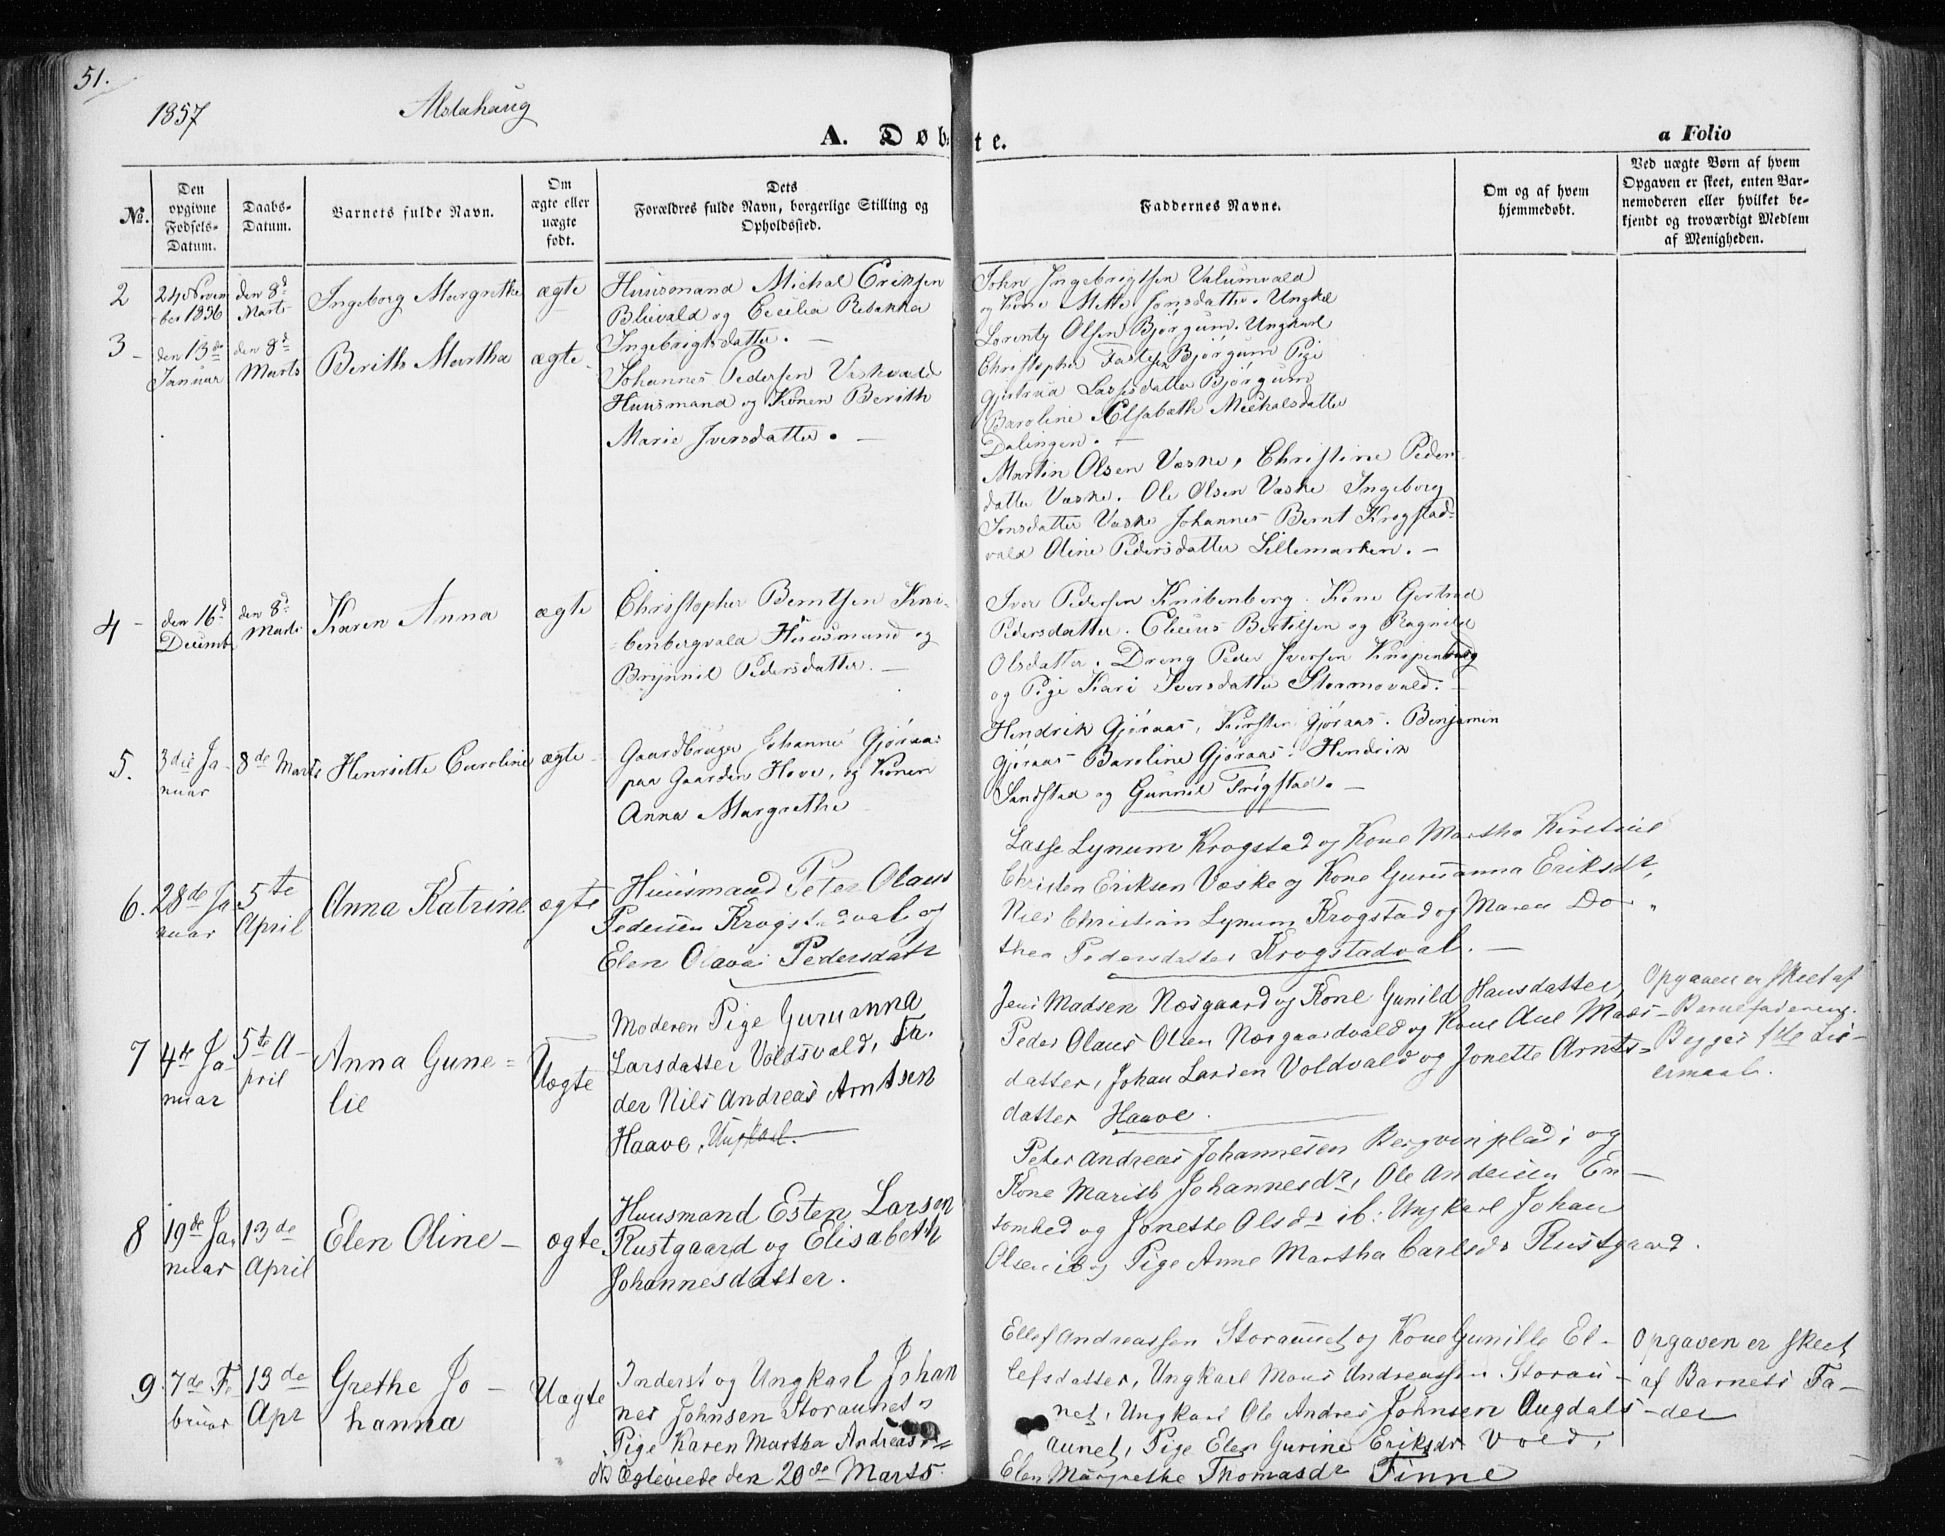 51.
1857
Alstahaug
A. Døbte.
a Folio
No.
Den opgivne Fødsels-Datum.
Daabs-Datum.
Barnets fulde Navn.
Om ægte eller uægte født.
Dets Forældres fulde Navn, borgerlige Stilling og Opholdssted.
Faddernes Navne.
Om og af hvem hjemmedøbt.
Ved uægte Børn af hvem Opgaven er skeet, enten Barnemoderen eller hvilket bekjendt og troværdigt Medlem af Menigheden.
2
24 Novem
ber 1856
den 8d
Marts
Ingeborg Margrethe
ægte
Huusmand Michal Eriksen
og Cecilia Rebakka
Ingebrigtsdatter. —
John Ingebrigtsen
og Kone Mette Jonsdatter. Ungkl
Lorents Olsen Bjørgum. Ungkarl
Christopher Bjørgum Pige
Gjertrud Lassesdatter Bjørgum
Baroline Elsabeth Michalsdatter
Dalingen. —
3 -
den 13de
Januar
den 8d
Marts
Berith Martha
ægte
Johannes Pedersen
Huusmand og Konen Berith
Marie Iversdatter. —
Martin Olsen Væske, Christine Peders
datter Væske. Ole Olsen Væske Ingeborg
Jonsdatter Væske Johannes Bernt Krogstad-
vald Oline Pedersdatter Lillemarken. —
4 -
den 16d
Decemb
den 8d
Marts
Karen Anna
ægte
Christopher Berntsen Kni-
benbergvald Huusmand og
Brynnil Pedersdatter. —
Iver Pedersen Knibenberg. Kone Gertrud
Pedersdatter. Bertelsen og Ragnild
Olsdatter. Dreng Peder Iversen Knipenberg
og Pige Kari Iversdatter
5.
3die Ja-
nuar
8de Marts
Henriette Caroline
ægte -
Gaardbruger Johannes Gjøraas
paa Gaarden Hove, og Konen
Anna Margrethe
Hendrik Gjøraas, Kirsten Gjøraas. Benjamin
Gjøraas Baroline Gjøraas. Hendrik
Sandstad og Gunnil Trøgstad. —
6.
28de Ja
nuar
5te
April
Anna Katrine
ægte
Huusmand Peter Olaus
Pedersen Krogstadval og
Elen Olava Pedersdatr
Lasse Lynum Krogstad og Kone Martha Kirstine
Christen Eriksen Væske og Kone Guruanna Eriksdr,
Nils Christian Lynum Krogstad og Maren Do-
thea Pedersdatter Krogstadval. —
7
4de Ja-
nuar
5te A-
pril
Anna Gune-
lie
Uægte
Moderen Pige Guruanna
Larsdatter Voldsvald, Fa-
der Nils Andreas Arntsen
Haave, Ungkarl.
Jens Madsen Næsgaard og Kone Gunild Hansdatter,
Peder Olaus Olsen Næsgaardvald og Kone Ane Mads-
datter, Johan Larsen Voldvald og Jonette Arnts-
datter Haave.
Opgaven er skeet af
Barnefaderen.
Begges 1ste Lei-
ermaal.
8
19de Ja-
nuar
13de
April
Elen Oline —
ægte
Huusmand Esten Larsen
Rustgaard og Elisabeth
Johannesdatter.
Peter Andreas Johannesen Bergvinplads og
Kone Marith Johannesdr, Ole Andersen En-
somhed og Jonette Olsdr ib: Ungkarl Johan
Olsen ib og Pige Anne Martha Carlsdr Rustgaard.
9
7de Fe
bruar
13de
Apr
Grethe Jo-
hanna
Uægte
Inderst og Ungkarl Johan
nes Johnsen Storaunet
Pige Karen Martha Andreasdr
NB Ægteviede den 20de Marts.
Ellef Andreassen Storaunet og Kone Gunille El-
lefsdatter, Ungkarl Mons Andreassen Storau-
net, Ungkarl Ole Andres Johnsen Augdals-
aunet, Pige Elen Gurine Eriksdr Vold,
Elen Margrethe Thomasdr Finne
Opgaven er skeet
af Barnets Fa-
der